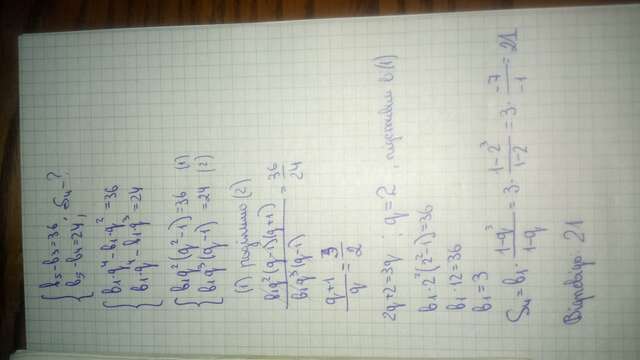 { b₅-b₃=36, S₄-?
{ b₅-b₄=24,
{ b₁·q⁴-b₁·q²=36
{ b₁q⁴-b₁q³=24
{ b₁q²(q²-1)=36 (1)
{ b₁q³(q-1)=24 (2)
(1) поділимо (2)
b₁q²(q-1)(q+1)/b₁q³(q-1) = 36/24
q+1/q = 3/2
2q+2=3q ; q=2 , підставим в (1)
b₁·2²(2²-1)=36
b₁·12=36
b₁=3
S₄=b₁·1-q³/1-q=3·1-2³/1-2=3·-7/-1=21
Відповідь: 21